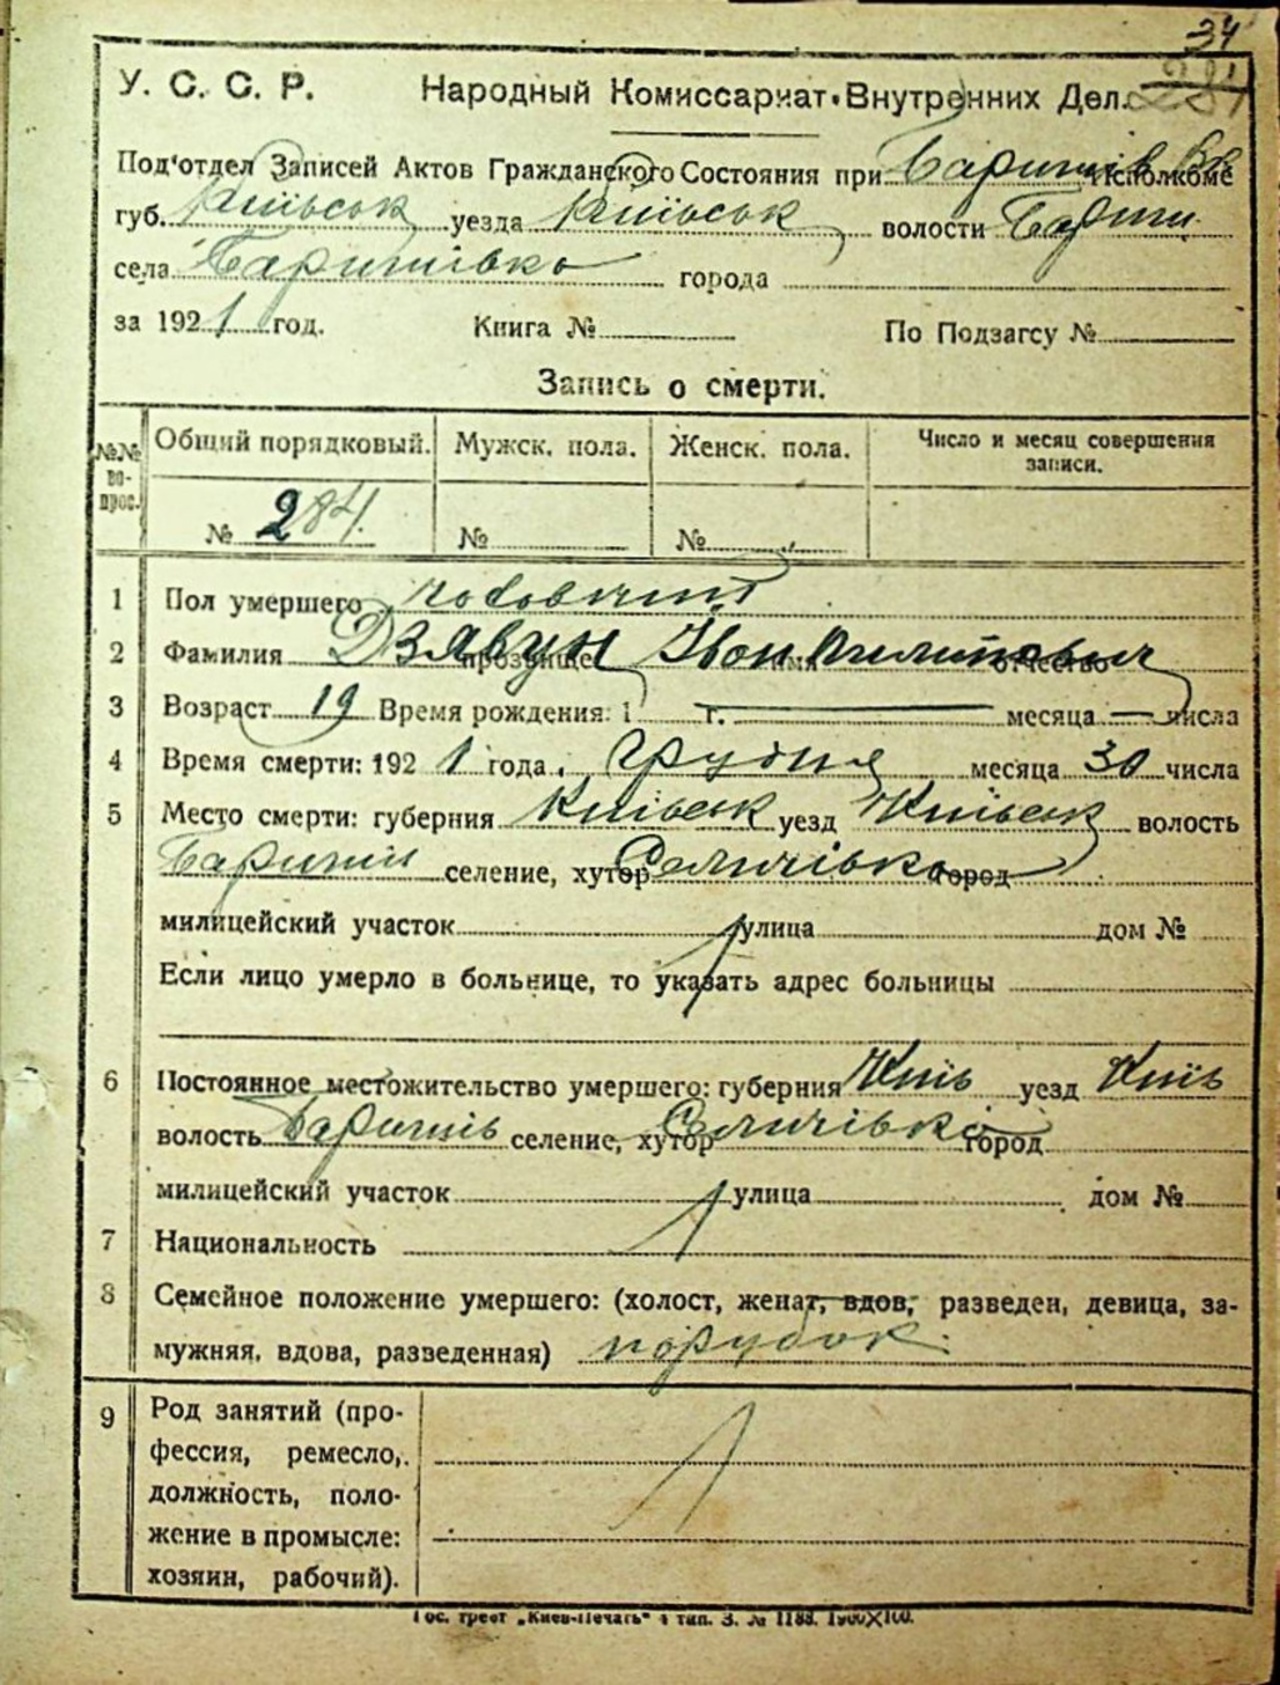 34
284
У. С. С. Р. Народный Комиссариат Внутренних Дел.
Под'отдел Записей Актов Гражданского Состояния при Баришів. Исполкоме
губ. Київськ уезда Київськ волости Бариш
села Баришівка города
за 1921 год. Книга № По Подзагсу №
Запись о смерти.
№№ во-прос. Общий порядковый. Мужск. пола. Женск. пола. Число и месяц совершения записи.
№ 284. № №
1 Пол умершего чоловічий
2 Фамилия Дзявун прозвище Іван имя Пилипович отчество
3 Возраст 19 Время рождения: 1 г. — месяца — числа
4 Время смерти: 1921 года. Грудня месяца 30 числа
5 Место смерти: губерния Київськ уезд Київськ волость
Бариш селение, хутор Селичівка город
милицейский участок улица дом №
Если лицо умерло в больнице, то указать адрес больницы
6 Постоянное местожительство умершего: губерния Київ уезд Київ
волость Баришів селение, хутор Селичівка город
милицейский участок улица дом №
7 Национальность
8 Семейное положение умершего: (холост, женат, вдов, разведен, девица, за-
мужняя, вдова, разведенная) порубок.
9 Род занятий (про-
фессия, ремесло,
должность, поло-
жение в промысле:
хозяин, рабочий).
Гос. трест „Киев-Печать" 4 тип. З. № 1188. 1900×100.